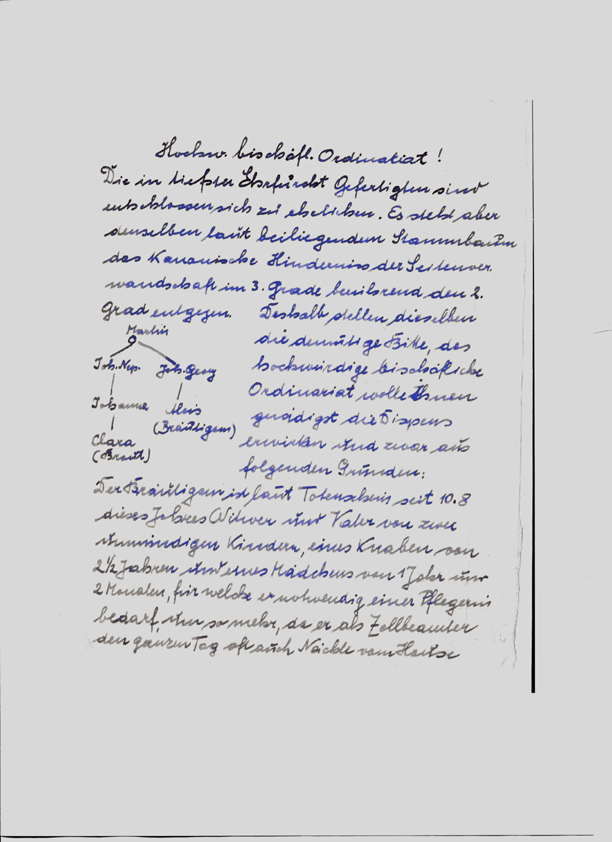 Hochw. bischöfl. Ordinariat!
Die in tiefster Ehrfurcht Gefertigten sind
entschlossen sich zu ehelichen. Es steht aber
denselben laut beiliegendem Stammbaum
das Kanonische Hinderniss der Seitenver.
wandschaft im 3. Grade berührend den 2.
Grad entgegen.
Martin
Joh. Nep. Joh. Georg
Johanna Alois
(Bräutigam)
Clara
(Braut)
Deshalb stellen dieselben
die demütige Bitte, das
hochwürdige bischöfliche
Ordinariat wolle Ihnen
gnädigst die Dispens
erwirken und zwar aus
folgenden Gründen:
Der Bräutigam ist laut Totenschein seit 10.8
dieses Jahres Witwer und Vater von zwei
unmündigen Kindern, eines Knaben von
2 1/2 Jahren und eines Mädchens von 1 Jahr und
2 Monaten, für welche er notwendig einer Pflegerin
bedarf, um so mehr, da er als Zollbeamter
den ganzen Tag oft auch Nächte vom Hause